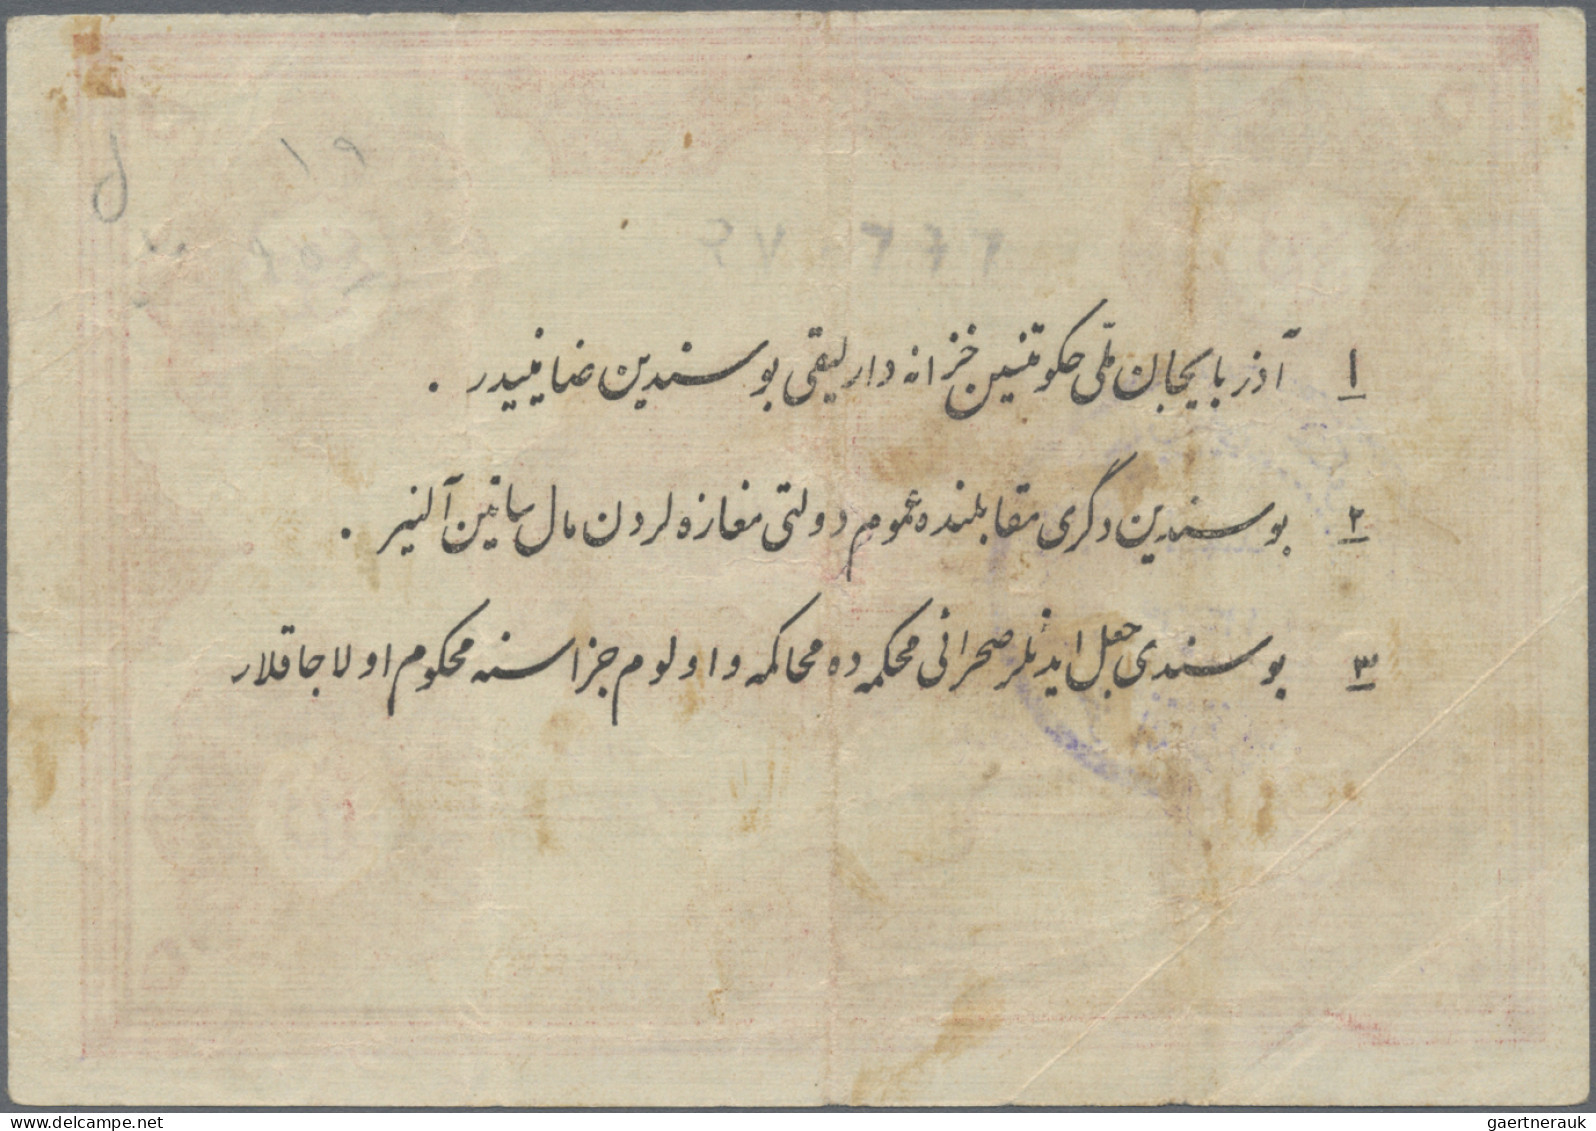 ۱ آذربایجان ملّی حکومتنین خزانه دارلیقی بو سندین ضامنیدر .
۲ بو سندین دگری مقابلنده عموم دولتی مغازه لردن مال ساتین آلنیر .
۳ بو سندی جعل ایدنلر صحرائی محکمه ده محاکمه و اولوم جزاسنه محکوم اولاجاقلار
gaertnerauk